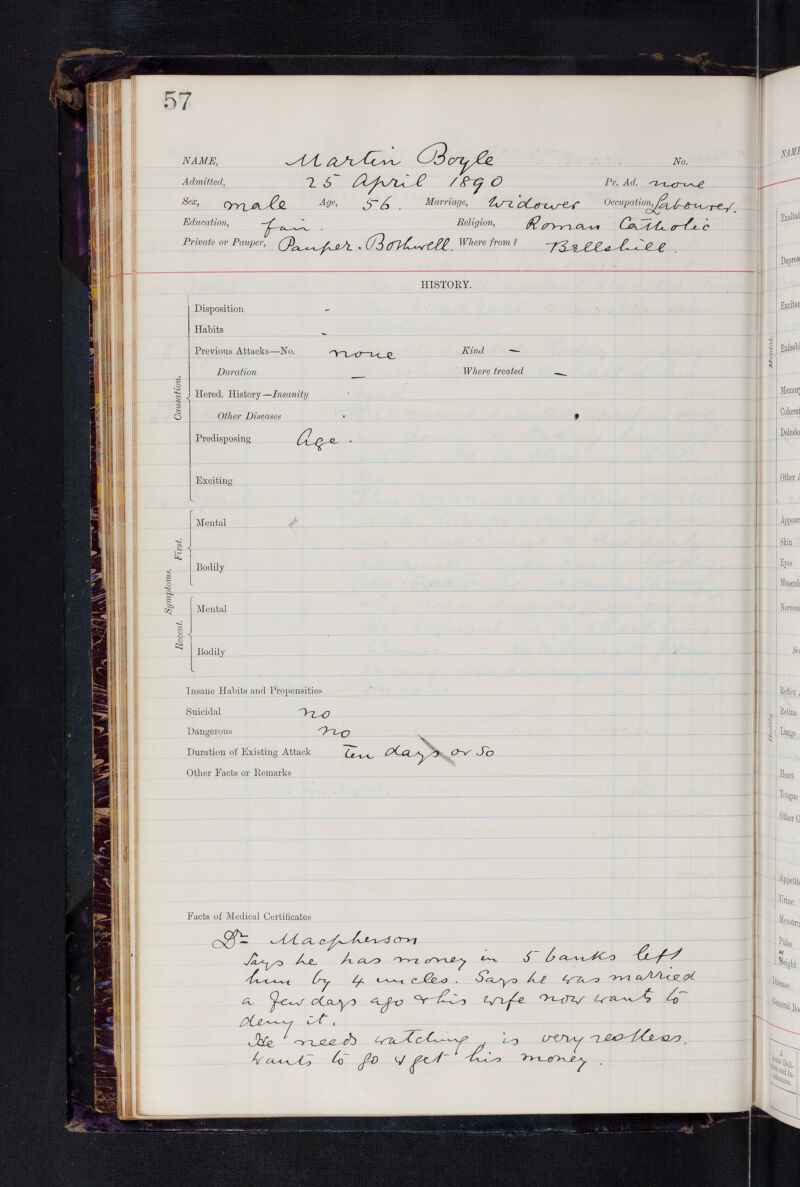 57
NAME, Martin Boyle No.
Admitted, 25 April 1890 Pr. Ad. none
Sex, male Age, 56. Marriage, Widower Occupation, Labourer.
Education, fair. Religion, Roman Catholic
Private or Pauper, Pauper. Bothwell. Where from? Bellshill.
HISTORY.
Causation.
Disposition -
Habits -
Previous Attacks—No. none Kind —
Duration — Where treated —
Hered. History—Insanity
Other Diseases
Predisposing Age.
Exciting
Symptoms.
First.
Mental
Bodily
Recent.
Mental
Bodily
Insane Habits and Propensities
Suicidal no
Dangerous no
Duration of Existing Attack Ten days or so
Other Facts or Remarks
Facts of Medical Certificates
Dr Macpherson
Says he has money in 5 banks left
him by 4 uncles. Says he was married
a few days ago & his wife now wants to
deny it.
He needs watching, is very restless.
Wants to go & get his money.
NAME
Exaltat
Depres
Excitem
Enfeebl
Mental.
Memory
Coheren
Delusio
Other A
Appear
Skin
Eyes
Muscul
Nervous
Reflex
Retina
Lungs
Bodily
Heart
Tongue
Other O
Appetite
Urine
Menstru
Pulse
Weight
Disease
General Bo